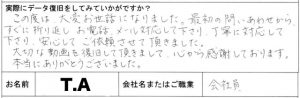 実際にデータ復旧をしてみていかがですか？
この度は大変お世話になりました。最初の問い合わせから
すぐに折り返しお電話、メール対応して下さり、丁寧に対応して
下さり、安心してご依頼させて頂きました。
大切な動画を復旧して頂きまして、心から感謝しております。
本当にありがとうございました。
お名前 T.A 会社名またはご職業 会社員